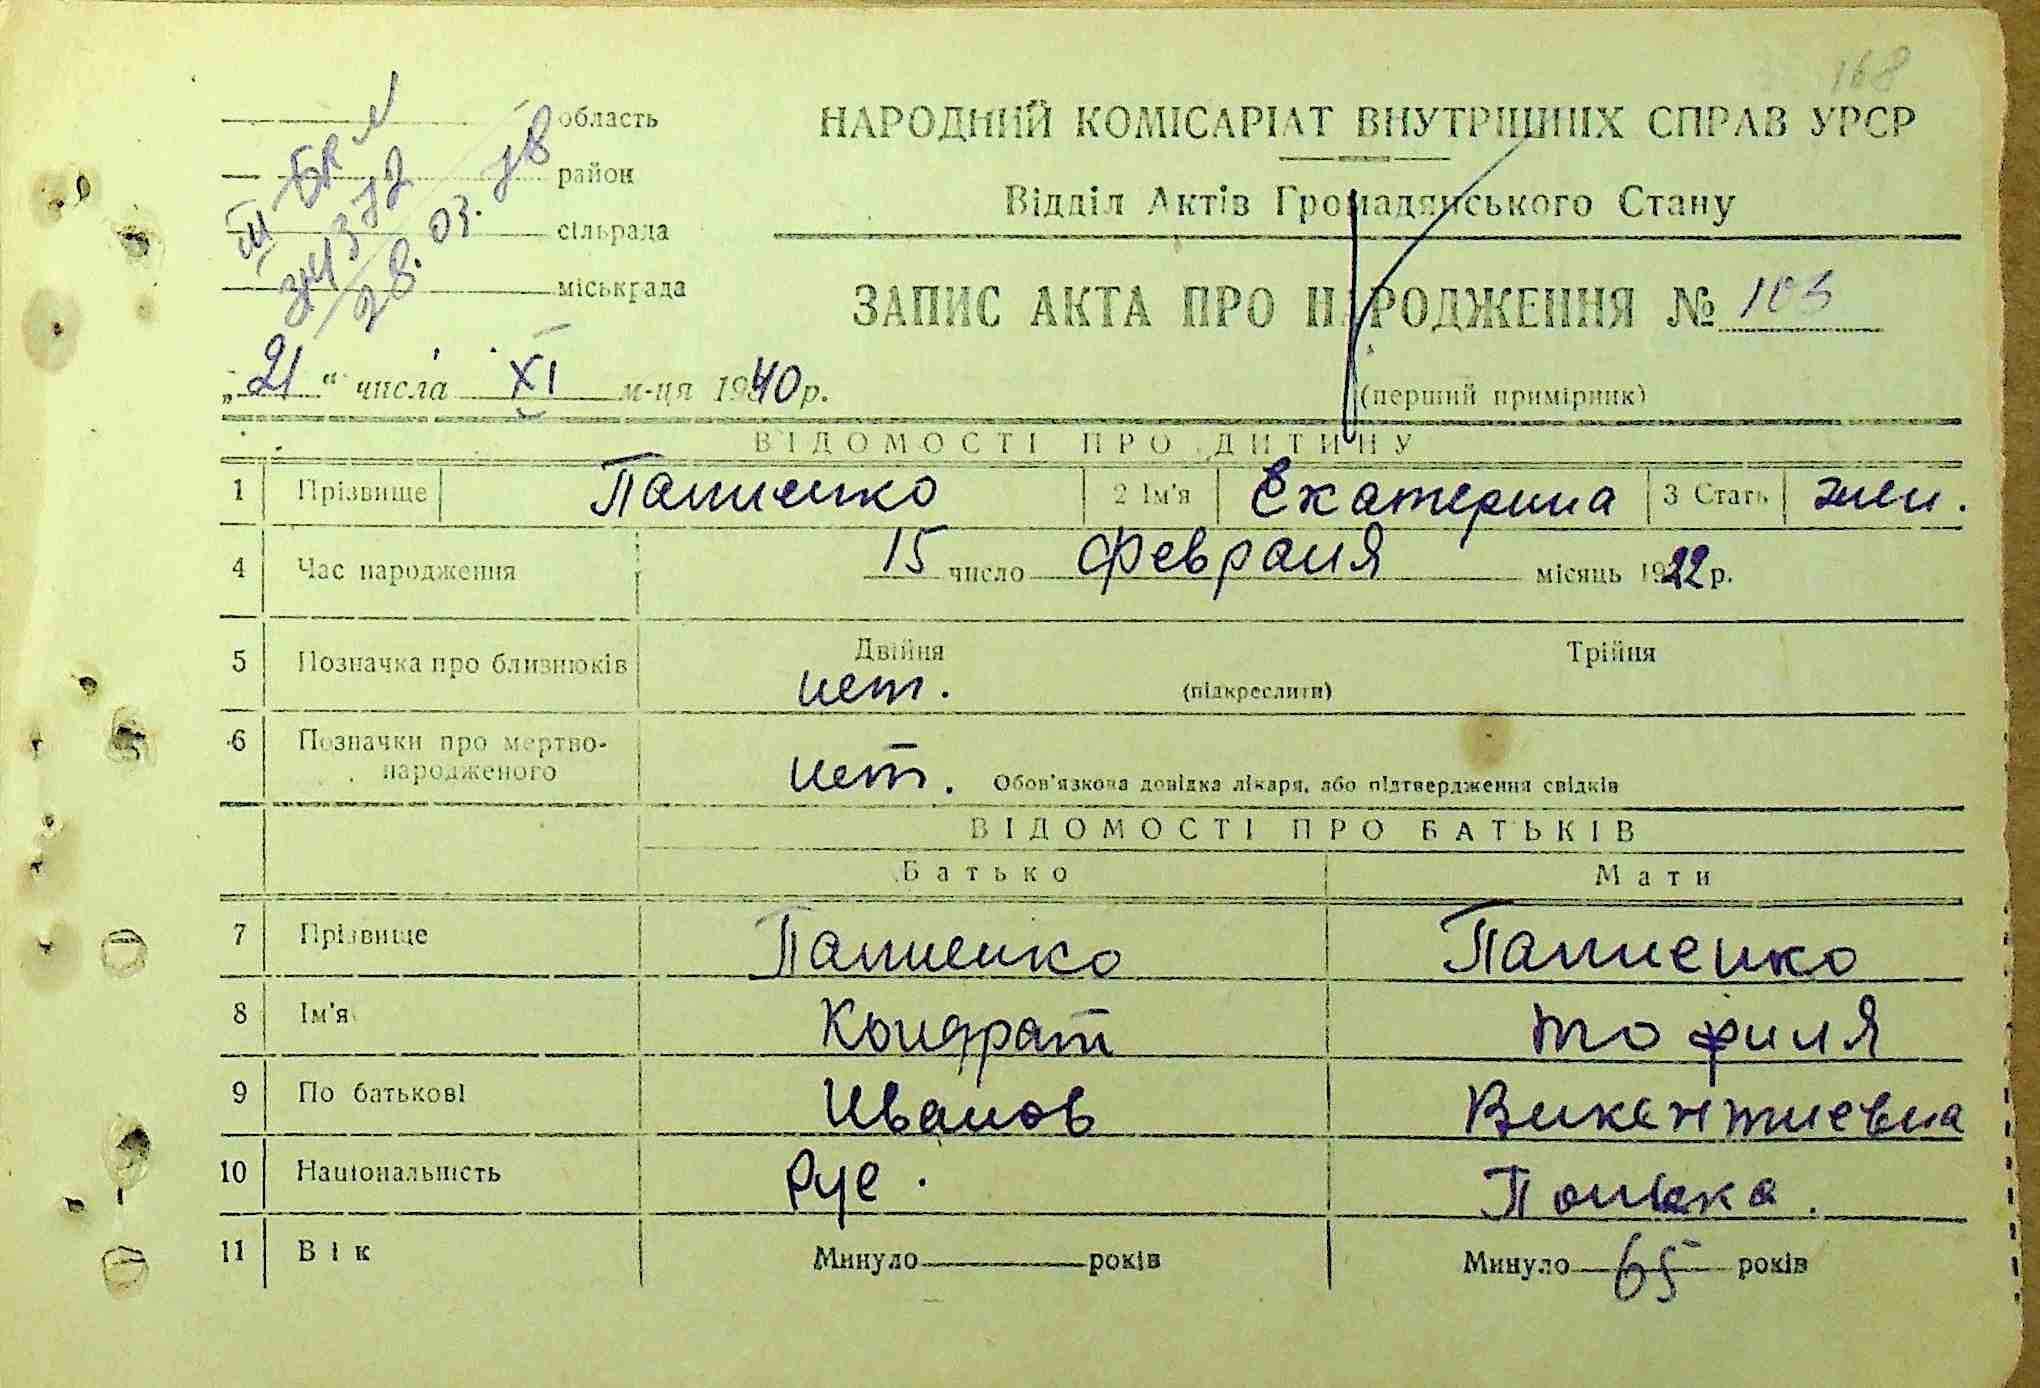 168
область
район
сільрада
міськрада
III БК №
343372
28.03.78
НАРОДНИЙ КОМІСАРІАТ ВНУТРІШНІХ СПРАВ УРСР
Відділ Актів Громадянського Стану
ЗАПИС АКТА ПРО НАРОДЖЕННЯ № 103
„21" числа XI м-ця 1940 р.
(перший примірник)
ВІДОМОСТІ ПРО ДИТИНУ
1 Прізвище Папиенко 2 Ім'я Екатерина 3 Стать жен.
4 Час народження 15 число февраля місяць 1922 р.
5 Позначка про близнюків Двійня Трійня
нет. (підкреслити)
6 Позначки про мертво-
народженого нет. Обов'язкова довідка лікаря, або підтвердження свідків
ВІДОМОСТІ ПРО БАТЬКІВ
Батько Мати
7 Прізвище Папиенко Папиенко
8 Ім'я Кондрат Тофиля
9 По батькові Иванов Викентиевна
10 Національність Рус. Полька.
11 Вік Минуло років Минуло 65 років